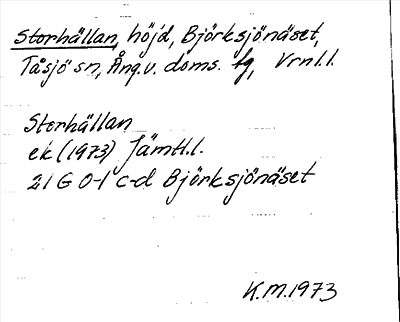 Storhällan, höjd, Björksjönäset,
Tåsjö sn, Ång.v. doms. fg, Vrnl.l.
Storhällan
ek (1973) Jämtl.l.
21 G 0-1 c-d Björksjönäset
K.M. 1973